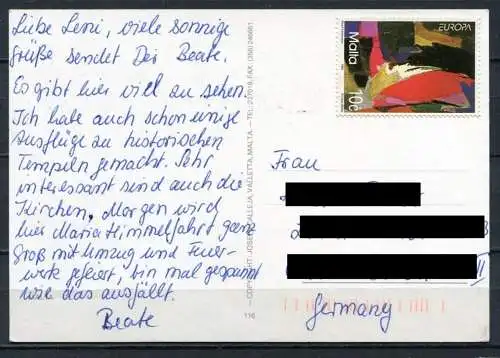 Liebe Leni, viele sonnige
Grüße sendet Dir Beate.
Es gibt hier viel zu sehen.
Ich habe auch schon einige
Ausflüge zu historischen
Tempeln gemacht. Sehr
interessant sind auch die
Kirchen. Morgen wird
hier Maria Himmelfahrt ganz
Groß mit Umzug und Feuer-
werk gefeiert, bin mal gespannt
wie das ausfällt.
Beate
© COPYRIGHT: JOSEPH CALLEJA, VALLETTA, MALTA. — TEL: FAX: (356) 246661
116
EUROPA
Malta
10c
Frau
Germany